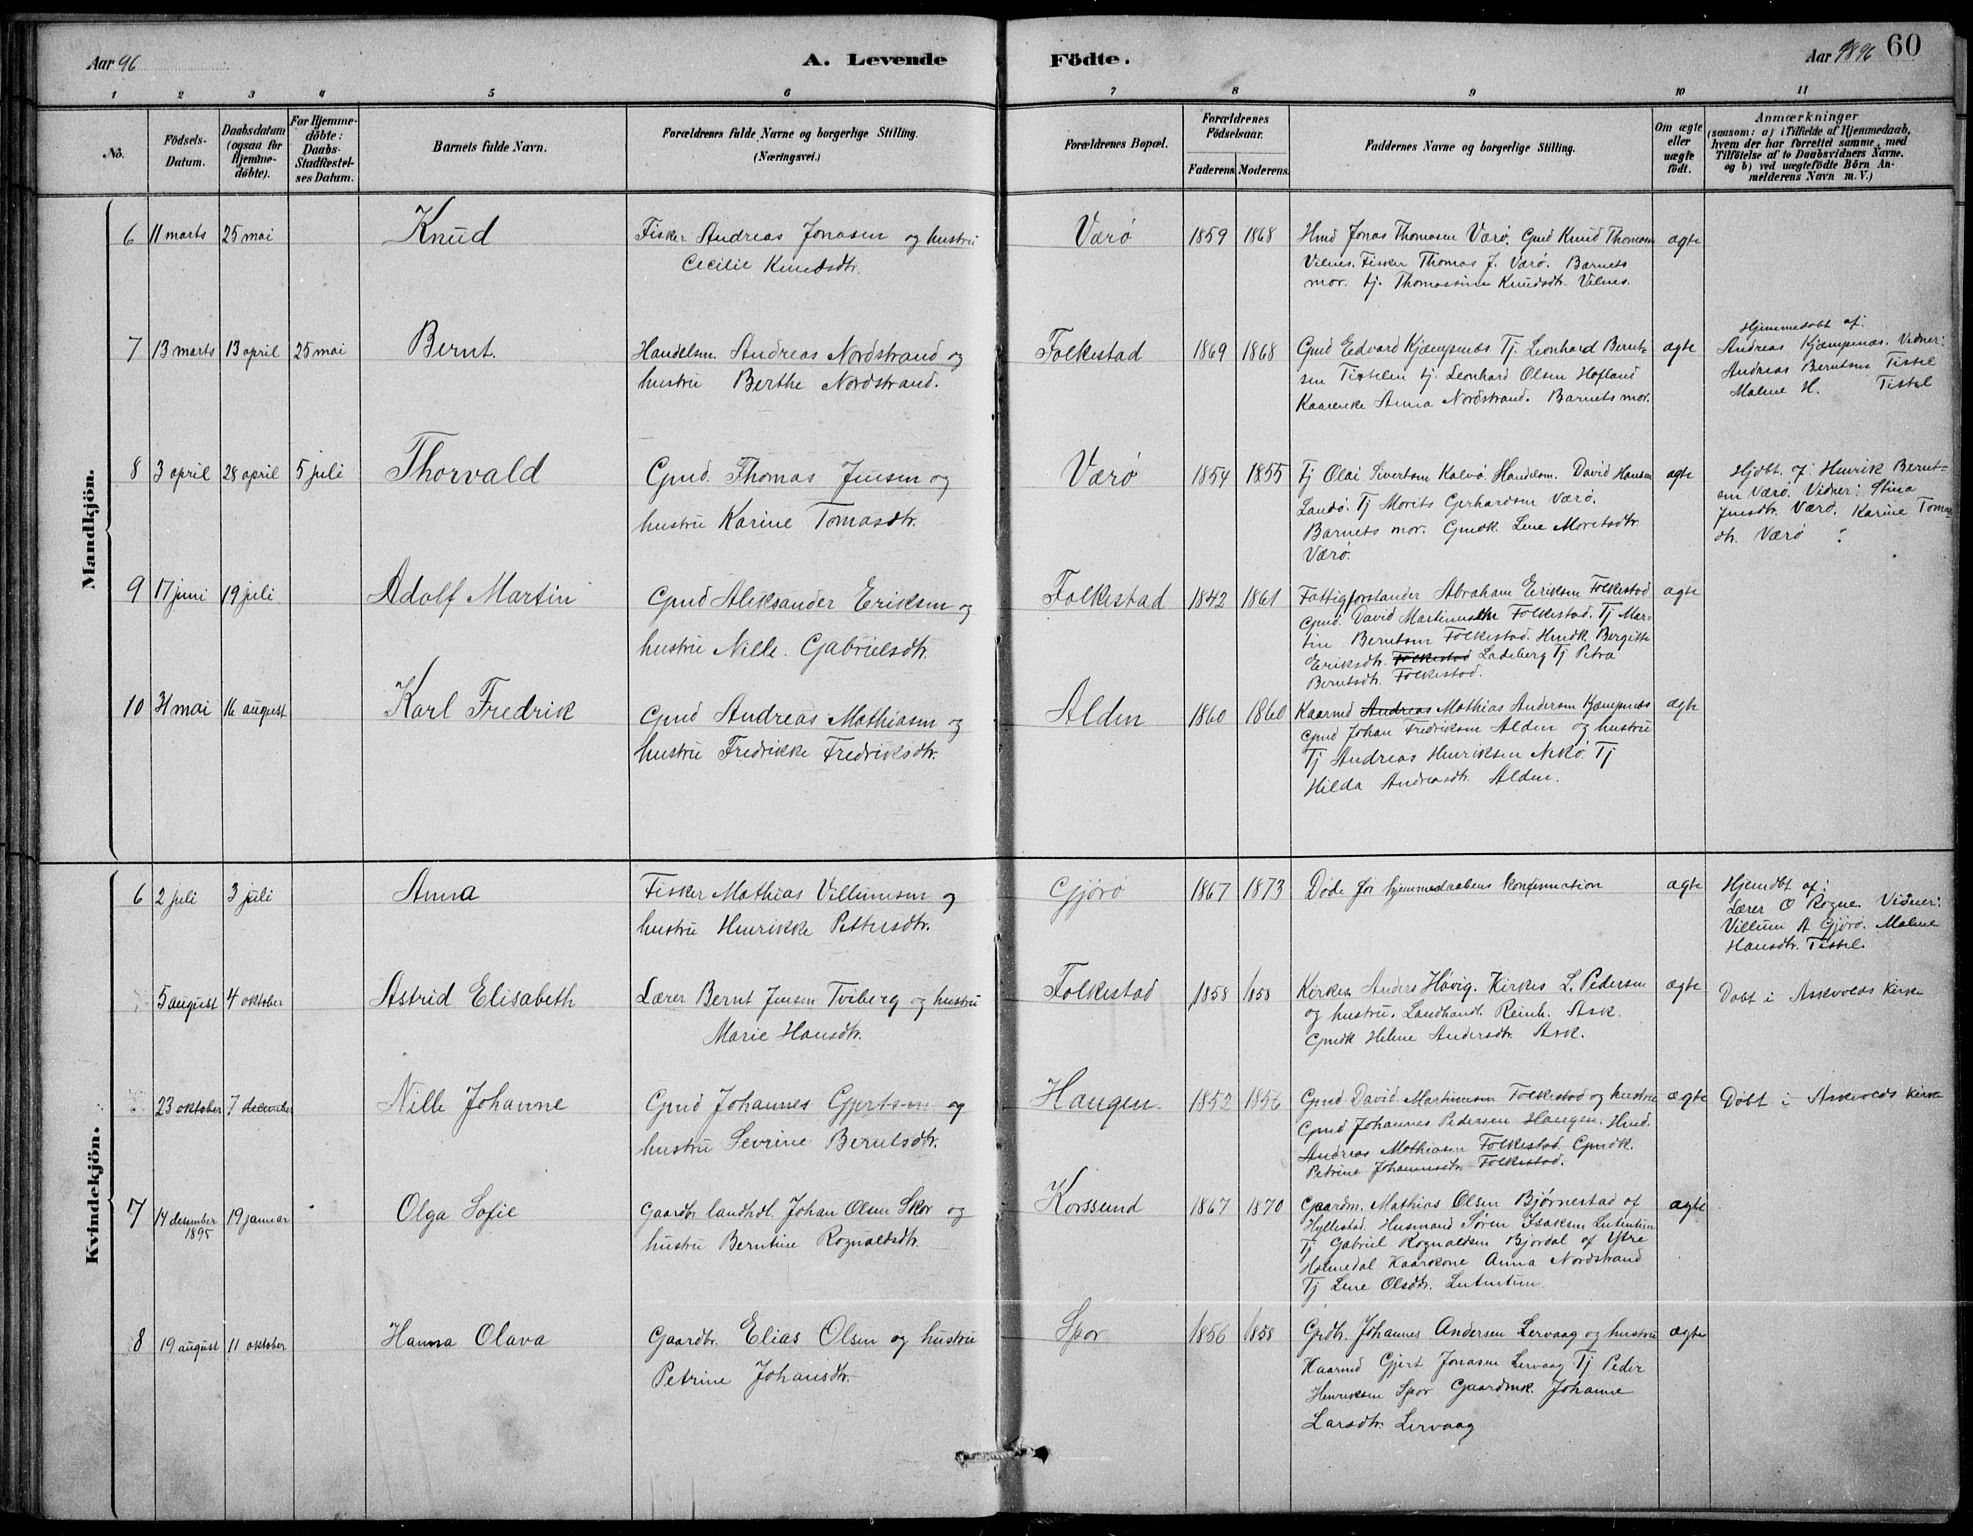 Aar 96
A. Levende Födte.
Aar 1896 60
1 2 3 4 5 6 7 8 9 10 11
No.
Födsels-Datum.
Daabsdatum (ogsaa for Hjemme-döbte).
For Hjemme-döbte: Daabs-Stadfæstel-ses Datum.
Barnets fulde Navn.
Forældrenes fulde Navne og borgerlige Stilling.
(Næringsvei.)
Forældrenes Bopæl.
Forældrenes Födselsaar.
Faderens Moderens
Faddernes Navne og borgerlige Stilling.
Om ægte eller uægte födt.
Anmærkninger
(saasom: a) i Tilfælde af Hjemmedaab,
hvem der har forrettet samme, med
Tilföielse af to Daabsvidners Navne.
og b) ved uægtefödte Börn An-
melderens Navn m. V.)
Mandkjön.
6 11 marts 25 mai Knud
Fisker Andreas Jonasen og hustru
Cecilie Knudsdtr.
Værø 1859 1868
Hmd Jonas Thomasen Værø. Gmd Knud Thomasen
Vilnes. Fisker Thomas J. Værø. Barnets
mor. tj. Thomassine Knudsdtr. Vilnes.
ægte
7 13 marts 13 april 25 mai Bernt.
Handelsm. Andreas Nordstrand og
hustru Berthe Nordstrand.
Folkestad 1869 1868
Gmd Edvard Kjæmpenæs Tj. Leonhard Bernt-
sen Tistelen tj. Leonhard Olsen Hofland
Kaarenke Anna Nordstrand. Barnets mor.
ægte
Hjemmedøbt af:
Andreas Kjæmpnæs. Vidner:
Andreas Berntsen Tistel
Malene H. Tistel
8 3 april 28 april 5 juli Thorvald
Gmd. Thomas Jensen og
hustru Karine Tomasdtr.
Værø 1854 1855
Tj Olai Sivertsen Kalvø. Handelsm. David Hansen
Landø. Tj Morits Gerhardsen Værø.
Barnets mor. Gmdk Lene Moritsdtr
Værø.
ægte
Hjdbt. af Henrik Bernt-
sen Værø. Vidner: Stina
Jensdtr. Værø. Karine Tomas
dtr. Værø
9 17 juni 19 juli Adolf Martin
Gmd Aleksander Eriksen og
hustru Nille Gabrielsdtr.
Folkestad 1842 1861
Fattigforstander Abraham Eriksen Folkestad
Gmd. David Martinussen Folkestad. Tj Mar-
tin Berntsen Folkestad. Hmdk. Bergitte
Eriksdtr. Folkestad Ladeberg Tj Petra
Berntsdtr. Folkestad.
ægte
10 31 mai 16 august Karl Fredrik
Gmd Andreas Mathiasen og
hustru Fredrikke Fredriksdtr.
Alden 1860 1860
Kaarmd Andreas Mathias Andersen Kjæmpnæs
Gmd Johan Fredriksen Alden og hustru
Tj Andreas Henriksen Nekø Tj
Hilda Andreasdtr. Alden.
ægte
Kvindekjön.
6 2 juli 3 juli Anna
Fisker Mathias Villumsen og
hustru Henrikke Pettersdtr.
Gjørø 1867 1873
Døde før hjemmedaabens konfirmation
ægte
Hjemdbt af:
Lærer O Rogne. Vidner:
Villum A Gjørø. Malene
Hansdtr. Tistel.
5 august 4 oktober Astrid Elisabeth
Lærer Bernt Jensen Tviberg og hustru
Marie Hansdtr.
Folkestad 1858 1858
Kirkes. Anders Høvig. Kirkes L. Pedersen
og hustru. Landhandl. Reinh. Ask.
Gmdk Helene Andersdtr. Ask.
ægte
Døbt i Askvolds Kirke
23 oktober 7 december Nille Johanne
Gmd Johannes Gjertsen og
hustru Sevrine Berntsdtr.
Haugen 1852 1856
Gmd David Martinusen Folkestad og hustru
Gmd Johannes Pedersen Haugen. Hmd.
Andreas Mathiasen Folkestad Gmdk.
Petrine Johannesdtr. Folkestad.
ægte
Døbt i Askvolds Kirke
7 14 desember 1895 19 januar Olga Sofie
Gaardbr landhdl. Johan Olsen Skor og
hustru Berntine Rognaldsdtr.
Korssund 1867 1870
Gaardm. Mathias Olsen Bjørnestad af
Hyllestad. Husmand Søren Isaksen Lutentun
Tj Gabriel Rognaldsen Bjordal af Ytre
Holmedal Kaarkone Anna Nordstrand
Tj Lene Olsdtr. Lutentun.
ægte
8 19 august 11 oktober Hanna Olava
Gaardbr. Elias Olsen og hustru
Petrine Johansdtr.
Spor 1856 1858
Grdbr. Johannes Andersen Lervaag og hustru
Kaarmd Gjert Jonasen Lervaag Tj Peder
Henriksen Spor Gaardmk. Johanne
Larsdtr. Lervaag
ægte